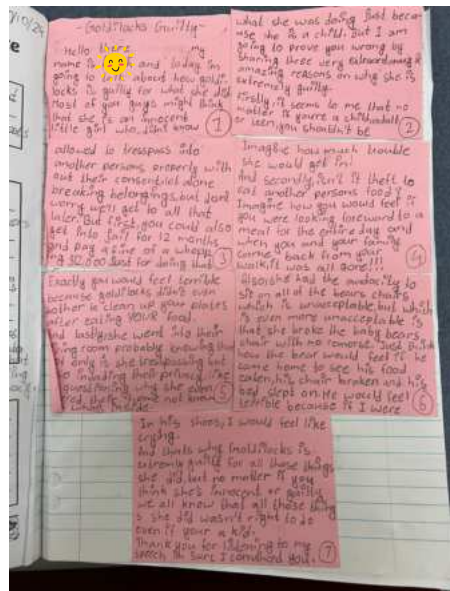 - Goldilocks Guilty -
Hello there my
name is and today im
going to talk about how goldi
locks is guilty for what she did.
Most of you guys might think
that she is an innocent
little girl who didnt know
1
what she was doing just beca-
use she is a child. But I am
going to prove you wrong by
sharing these very extraordinary &
amazing reasons on why she is
extremely guilty.
Firstly, it seems to me that no
matter if youre a child, adult
or teen, you shouldn't be
2
allowed to tresspass into
another persons property with
out their consent, let alone
breaking belongings, but dont
worry we'll get to all that
later. But first, you could also
get into jail for 12 months
and pay a fine of a whopp-
ing just for doing that
3
Imagine how much trouble
she would get in!
And secondly, isn't it theft to
eat another persons food?
Imagine how you would feel if
you were looking foreward to a
meal for the entire day and
when you and your family
came back from your
walk, it was all gone!!!
4
Exactly you would feel terrible
because goldilocks didn't even
bother to clean up your plates
after eating YOUR food.
And lastly she went into their
living room probably knowing that
not only is she tresspassing but
so invading their privacy like
questioning why she even
5
Also she had the audacity to
sit on all of the bears chairs
which is unacceptable, but which
is even more unacceptable is
that she broke the baby bears
chair with no remorse. Just think
how the bear would feel if he
came home to see his food
eaten, his chair broken and his
bed slept on. He would feel
terrible because if I were
6
In his shoes, I would feel like
crying.
And thats why Goldilocks is
extremely guilty for all those things
she did, but no matter if you
think she's innocent or guilty,
we all know that all those thing
s she did wasn't right to do
even if your a kid.
Thank you for listening to my
speech im sure I convinced you.
7